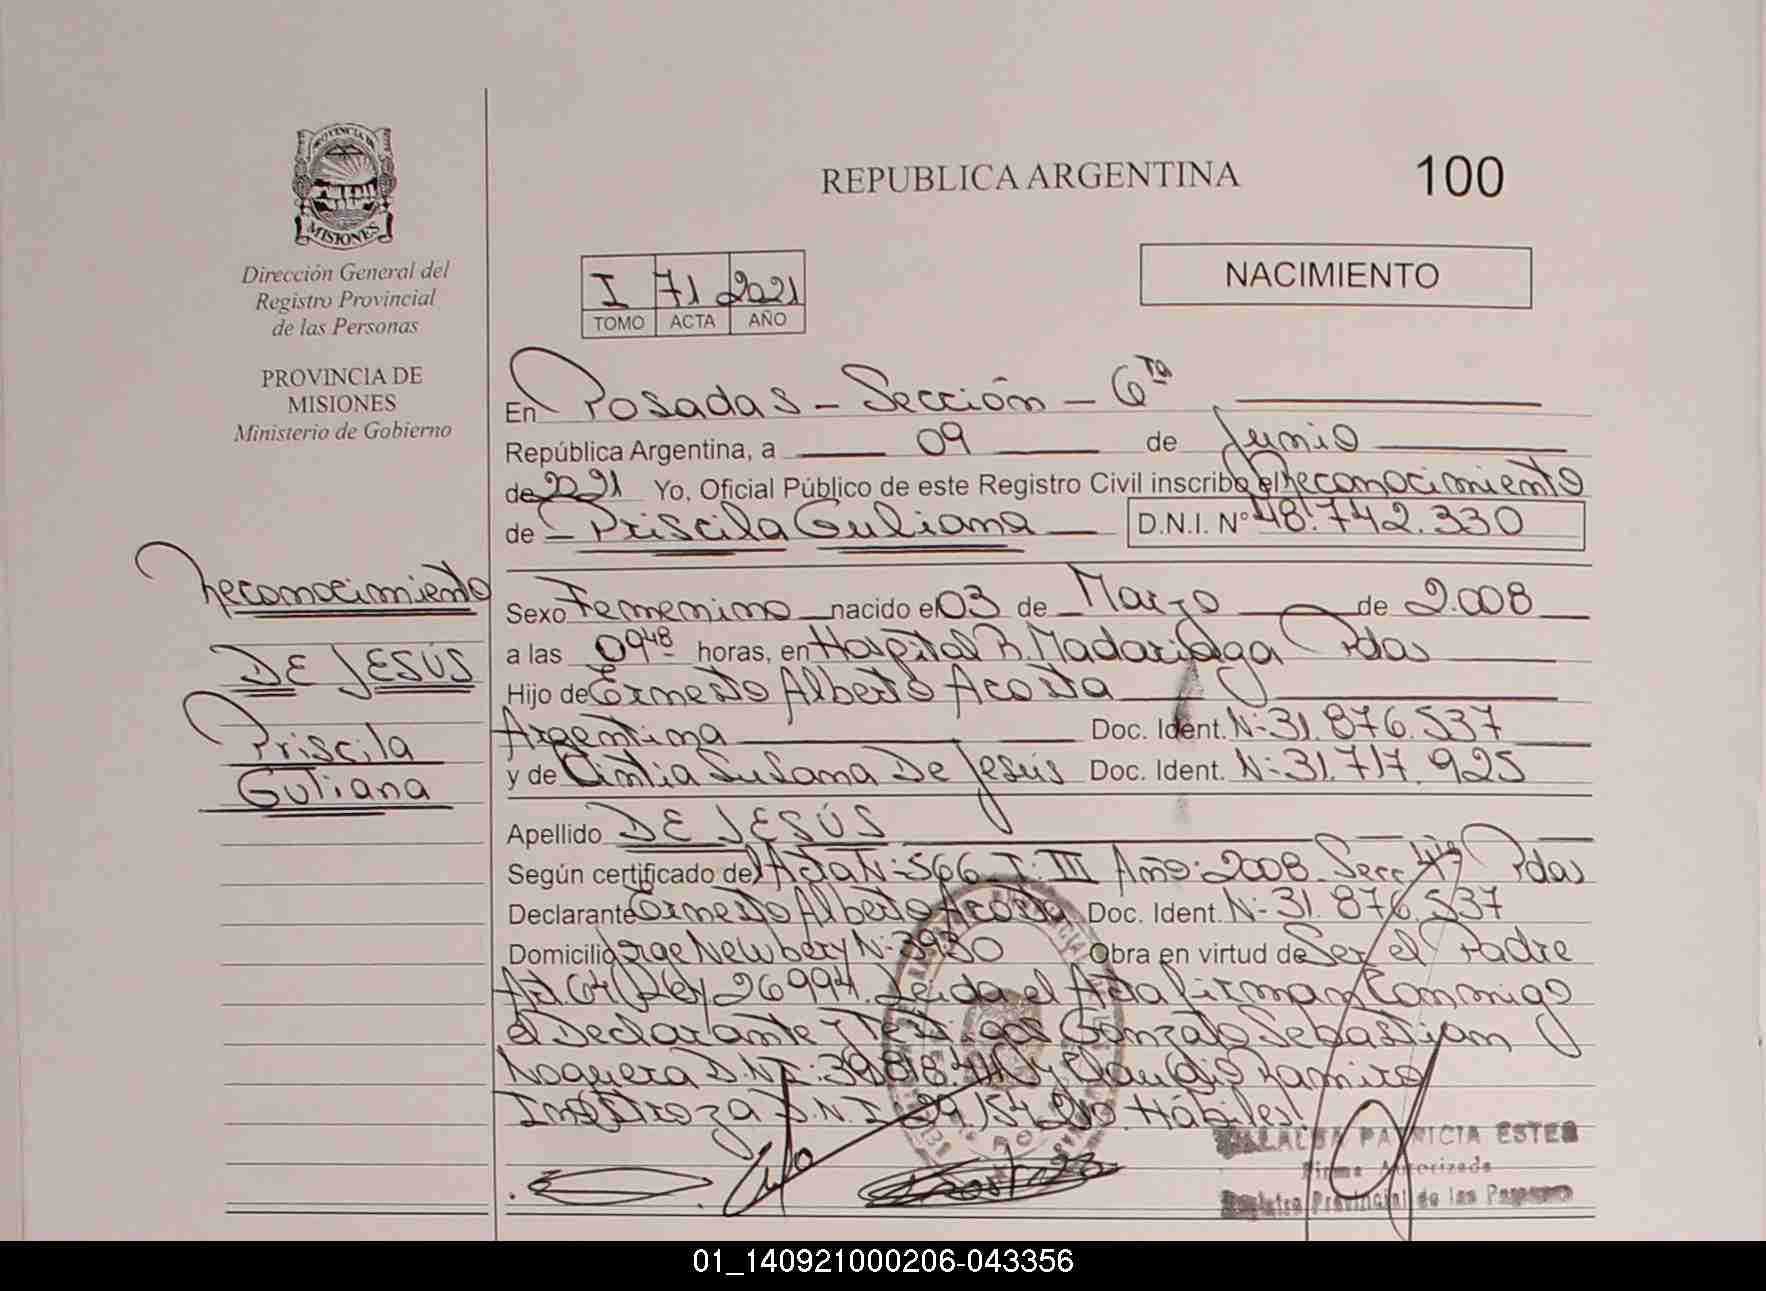 PROVINCIA DE
MISIONES
Dirección General del
Registro Provincial
de las Personas
PROVINCIA DE
MISIONES
Ministerio de Gobierno
Reconocimiento
DE JESÚS
Priscila
Guliana
REPUBLICA ARGENTINA
100
I 71 2021
TOMO ACTA AÑO
NACIMIENTO
En Posadas - Sección - 6ta
República Argentina, a 09 de Junio
de 2021 Yo, Oficial Público de este Registro Civil inscribo el Reconocimiento
de - Priscila Guliana D.N.I. N° 48.742.330
Sexo Femenino nacido el 03 de Marzo de 2.008
a las 09 48 horas, en Hospital R. Madariaga Pdas
Hijo de Ernesto Alberto Acosta
Argentina Doc. Ident. N- 31.876.537
y de Cintia Susana De Jesús Doc. Ident. N- 31.717.925
Apellido DE JESÚS
Según certificado de Acta N- 566 T: III Año: 2008 Secc 4ta Pdas
Declarante Ernesto Alberto Acosta Doc. Ident. N- 31.876.537
Domicilio Jorge Newbery N- 3930 Obra en virtud de Ser el Padre
Art. 64 Ley 26994. Leida el Acta firman Conmigo
el Declarante y Testigos Gonzalo Sebastian
Noguera D.N.I: y Claudio Ramiro
D.N.I 29.154.210. Hábiles
PATRICIA ESTER
Firma Autorizada
Registro Provincial de las Personas
01_140921000206-043356